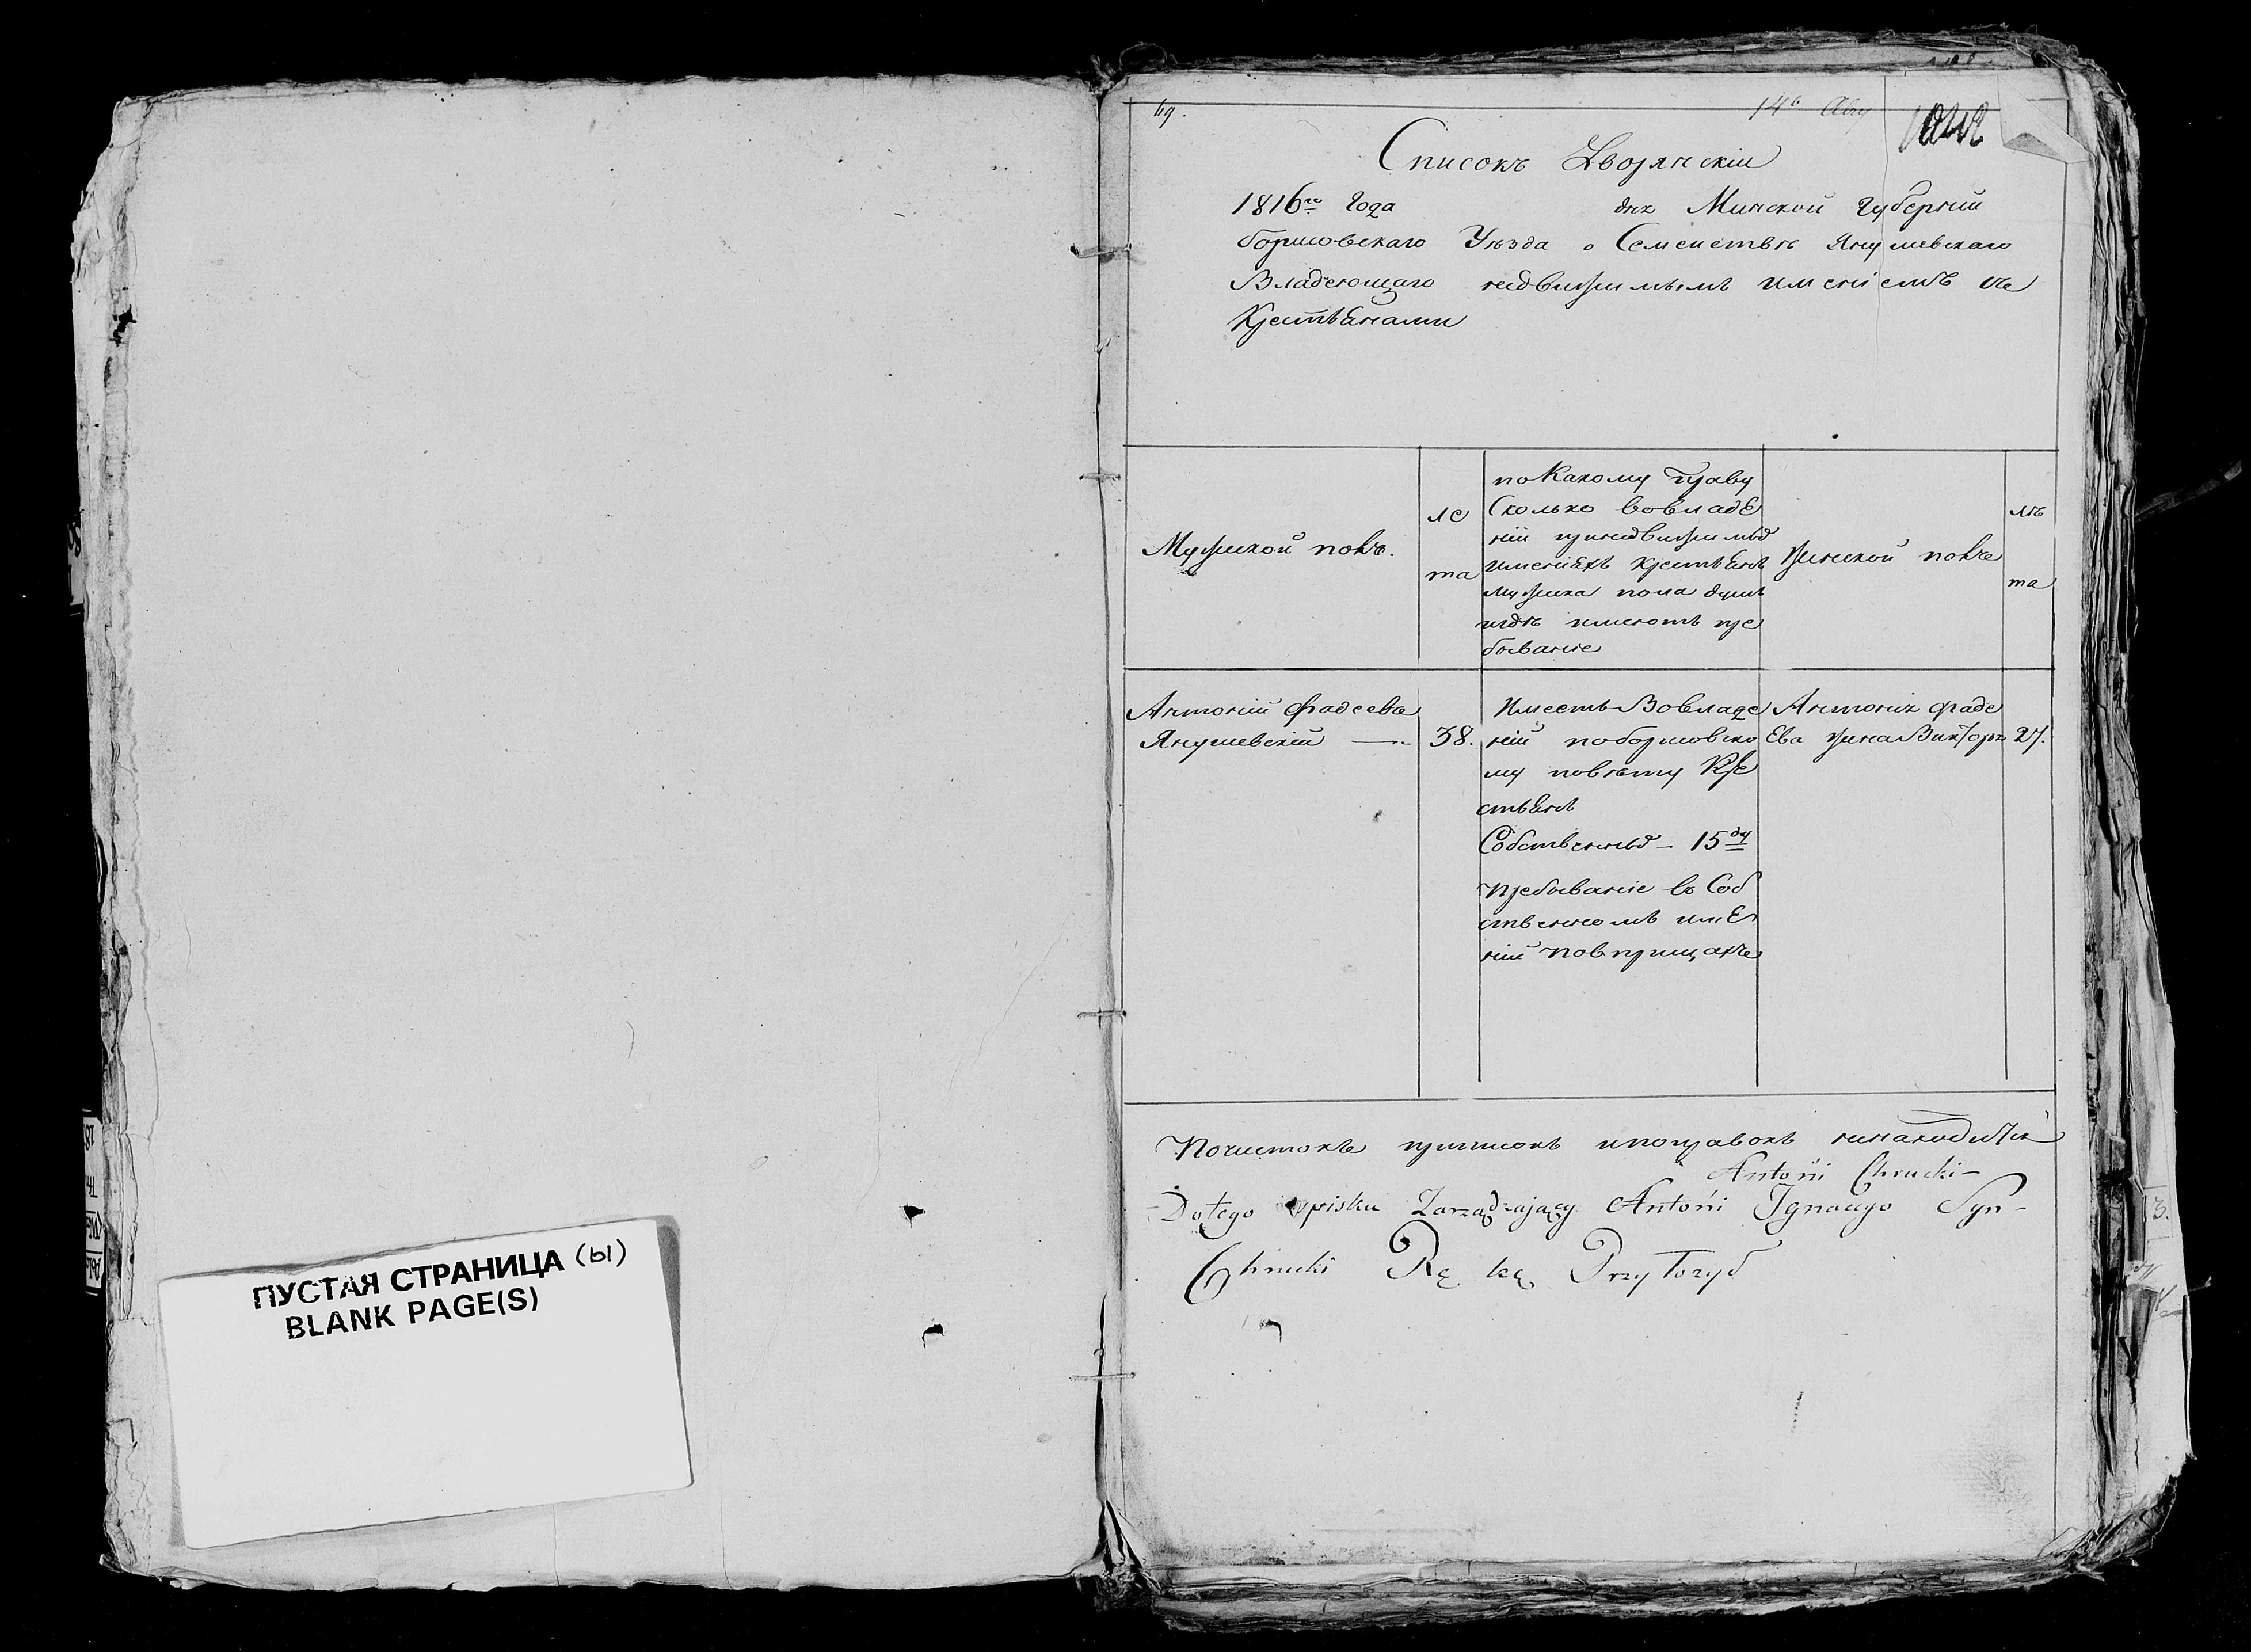 ПУСТАЯ СТРАНИЦА (ы)
BLANK PAGE(S)
69.
14
Списокъ Дворянскіи
1816го года дня Минской Губерніи
борисовскаго Уѣзда о Семействѣ Янушевскаго
Владеющаго недвижимымъ имениемъ съ
Крестьянами
Мужской полъ.
ле
та
по Какому Праву
Сколько вовладе
ніи принедвижимых
имениях крестьянъ
мужска пола душъ
игдѣ имеютъ пре
бывание
женской полъ
лѣ
та
Антоній фадеевъ
Янушевскіи
38.
Имеетъ Вовладе
ніи поборисовско
му повѣту Кре
стьянъ
Собственных - 15 ду
Пребываніе в Соб
ственномъ име
ніи
Антонія фаде
Ева жена Викторя
27.
Почистокъ приписокъ ипоправокъ ненаходится
Antoni Chrucki -
Do tego spisku Zarządzający Antoni Ignacego Syn -
Chrucki Rę kę Przy łożył